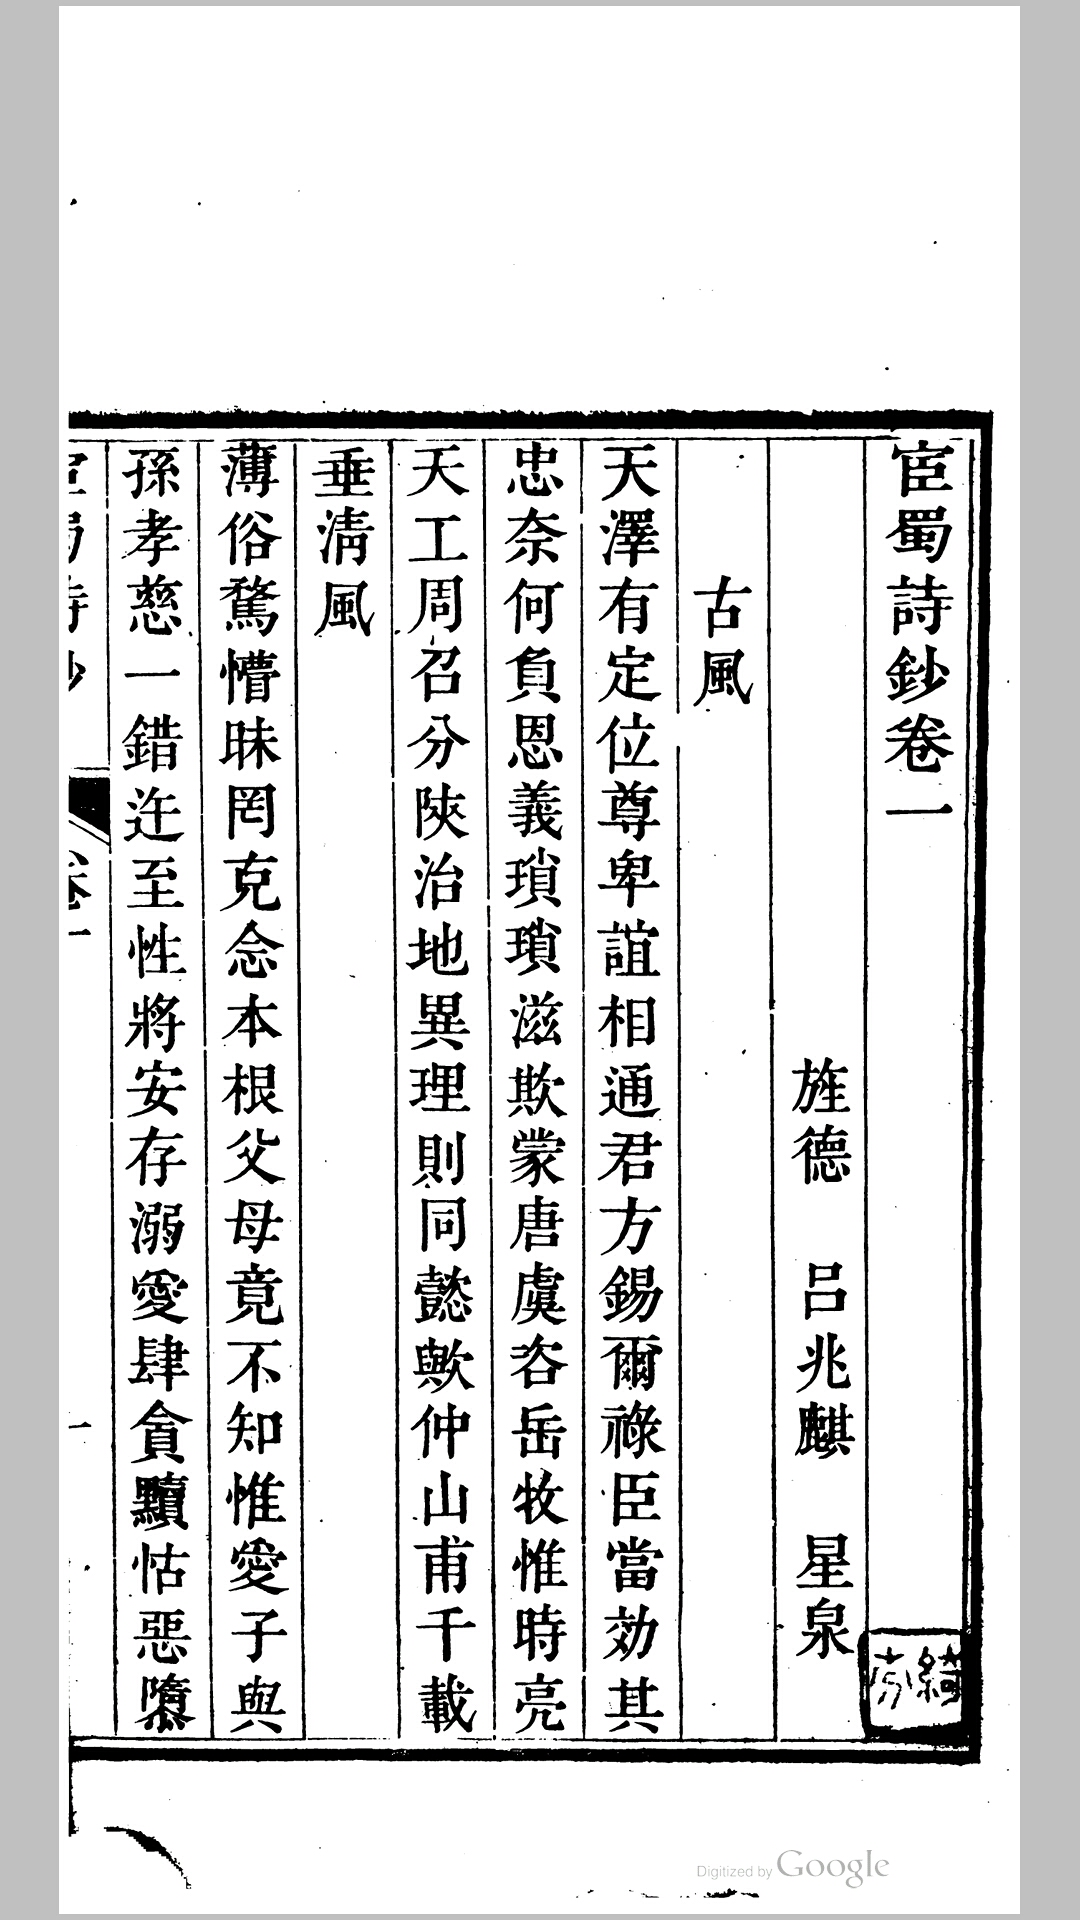 宦蜀詩鈔卷一
旌德 呂兆麒 星泉
古風
天澤有定位尊卑誼相通君方錫爾祿臣當効其
忠奈何負恩義瑣瑣滋欺蒙唐虞咨岳牧惟時亮
天工周召分陝治地異理則同懿歟仲山甫千載
垂清風
薄俗驁懵昧罔克念本根父母竟不知惟愛子與
孫孝慈一錯迕至性將安存溺愛肆貪黷怙惡隳
卷一
一
Digitized by Google